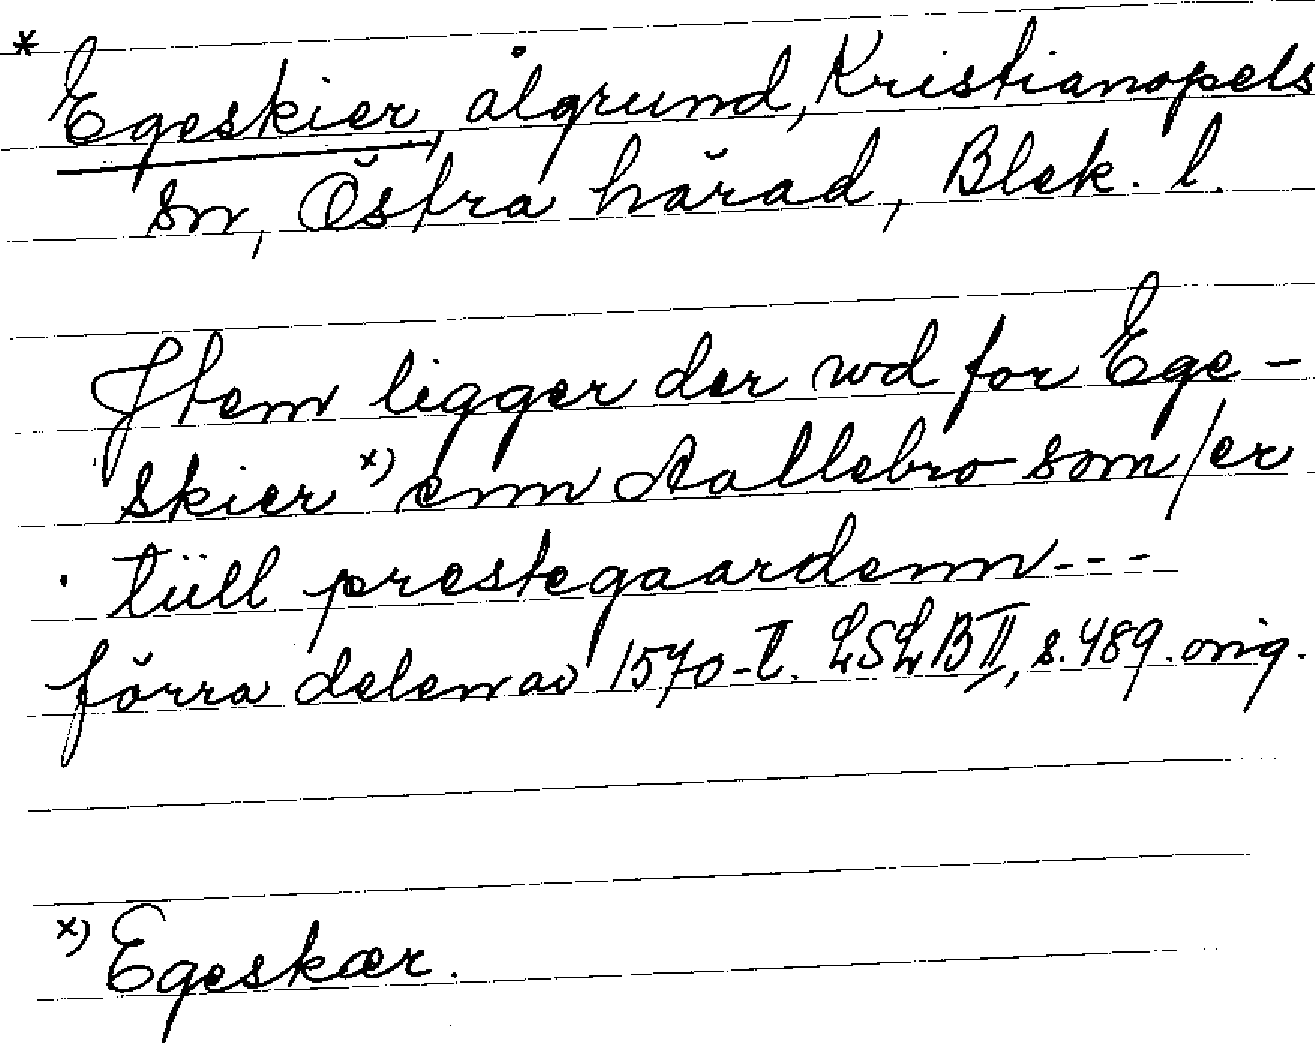 * Egeskier, ålgrund, Kristianopels
sn, Östra härad, Blek. l.
Jtem ligger der wd for Ege-
skier x) enn Aallebro som/er
tüll prestegaardenn---
förra delen av 1570-t. LSLB II, s. 489. orig.
x) Egeskær.